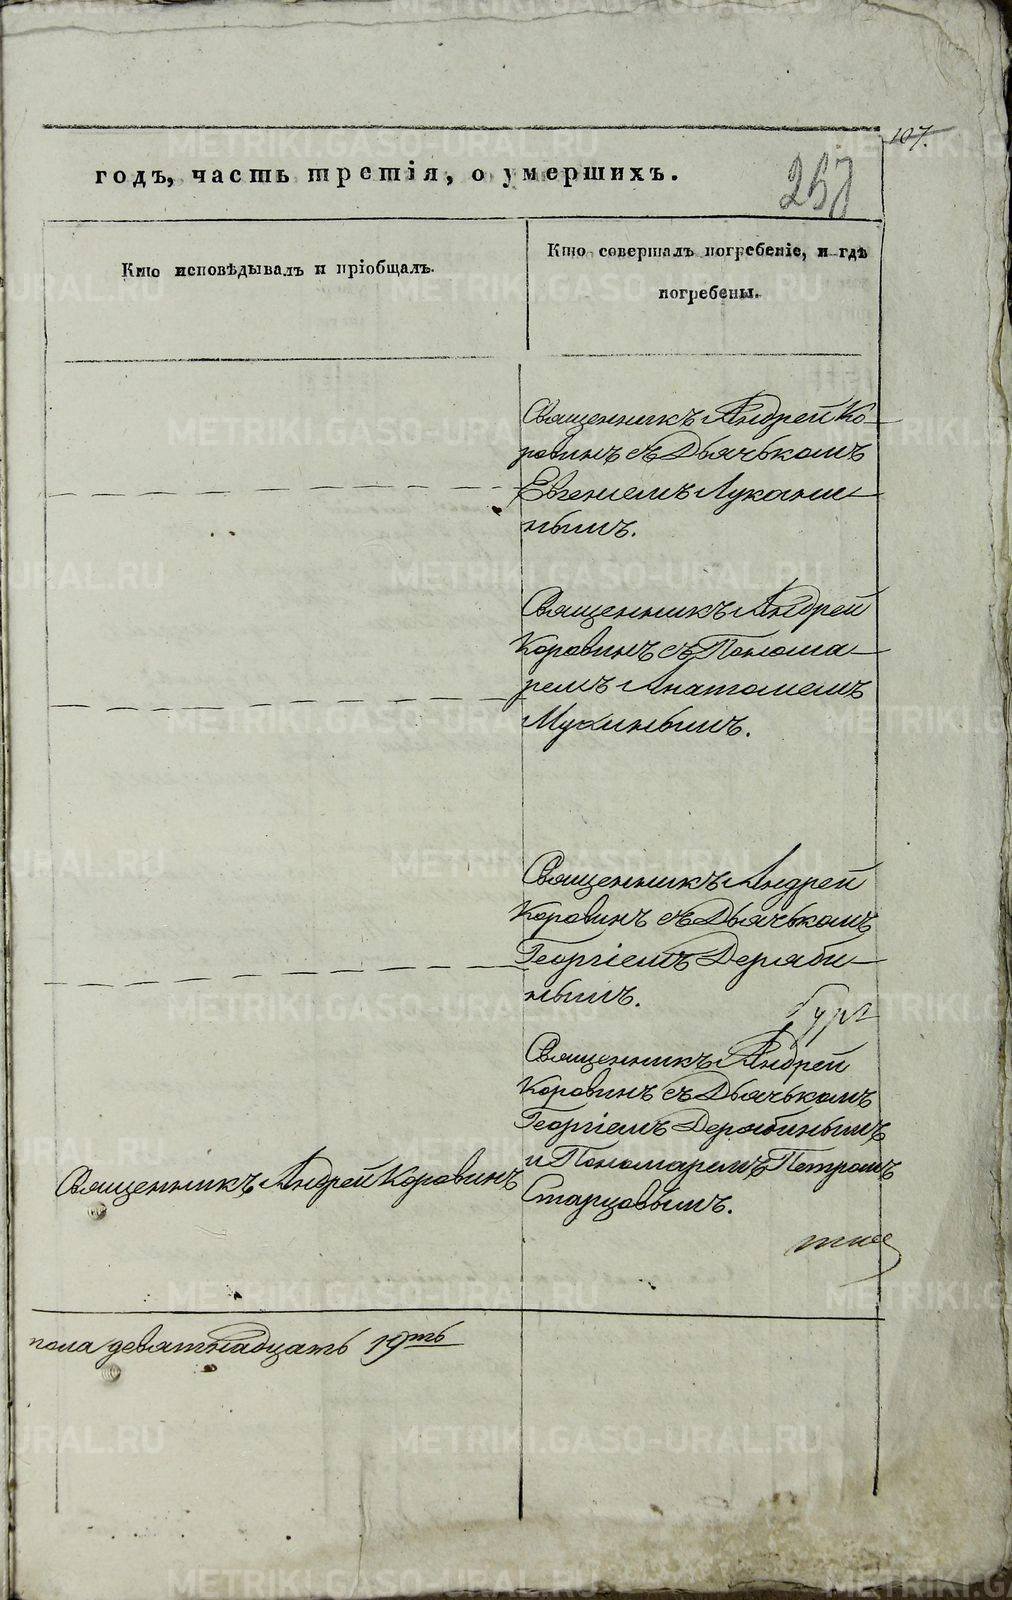 107.
годъ, часть третія, о умершихъ.
257
Кто исповѣдывалъ и пріобщалъ.
Кто совершалъ погребеніе, и гдѣ
погребены.
Священникъ Андрей Ко-
ровинъ съ Дьячькомъ
Евгеніемъ Лукани-
нымъ.
Священникъ Андрей
Коровинъ съ Понома-
ремъ Анатолиемъ
Мухинымъ.
Священникъ Андрей
Коровинъ съ Дьячькомъ
Георгіемъ Деряби-
нымъ.
Священникъ Андрей
Коровинъ съ Дьячькомъ
Георгіемъ Дерябинымъ
и Пономаремъ Петромъ
Старцовымъ.
Священникъ Андрей Коровинъ
пола девятнадцать 19ть
METRIKI.GASO-URAL.RU